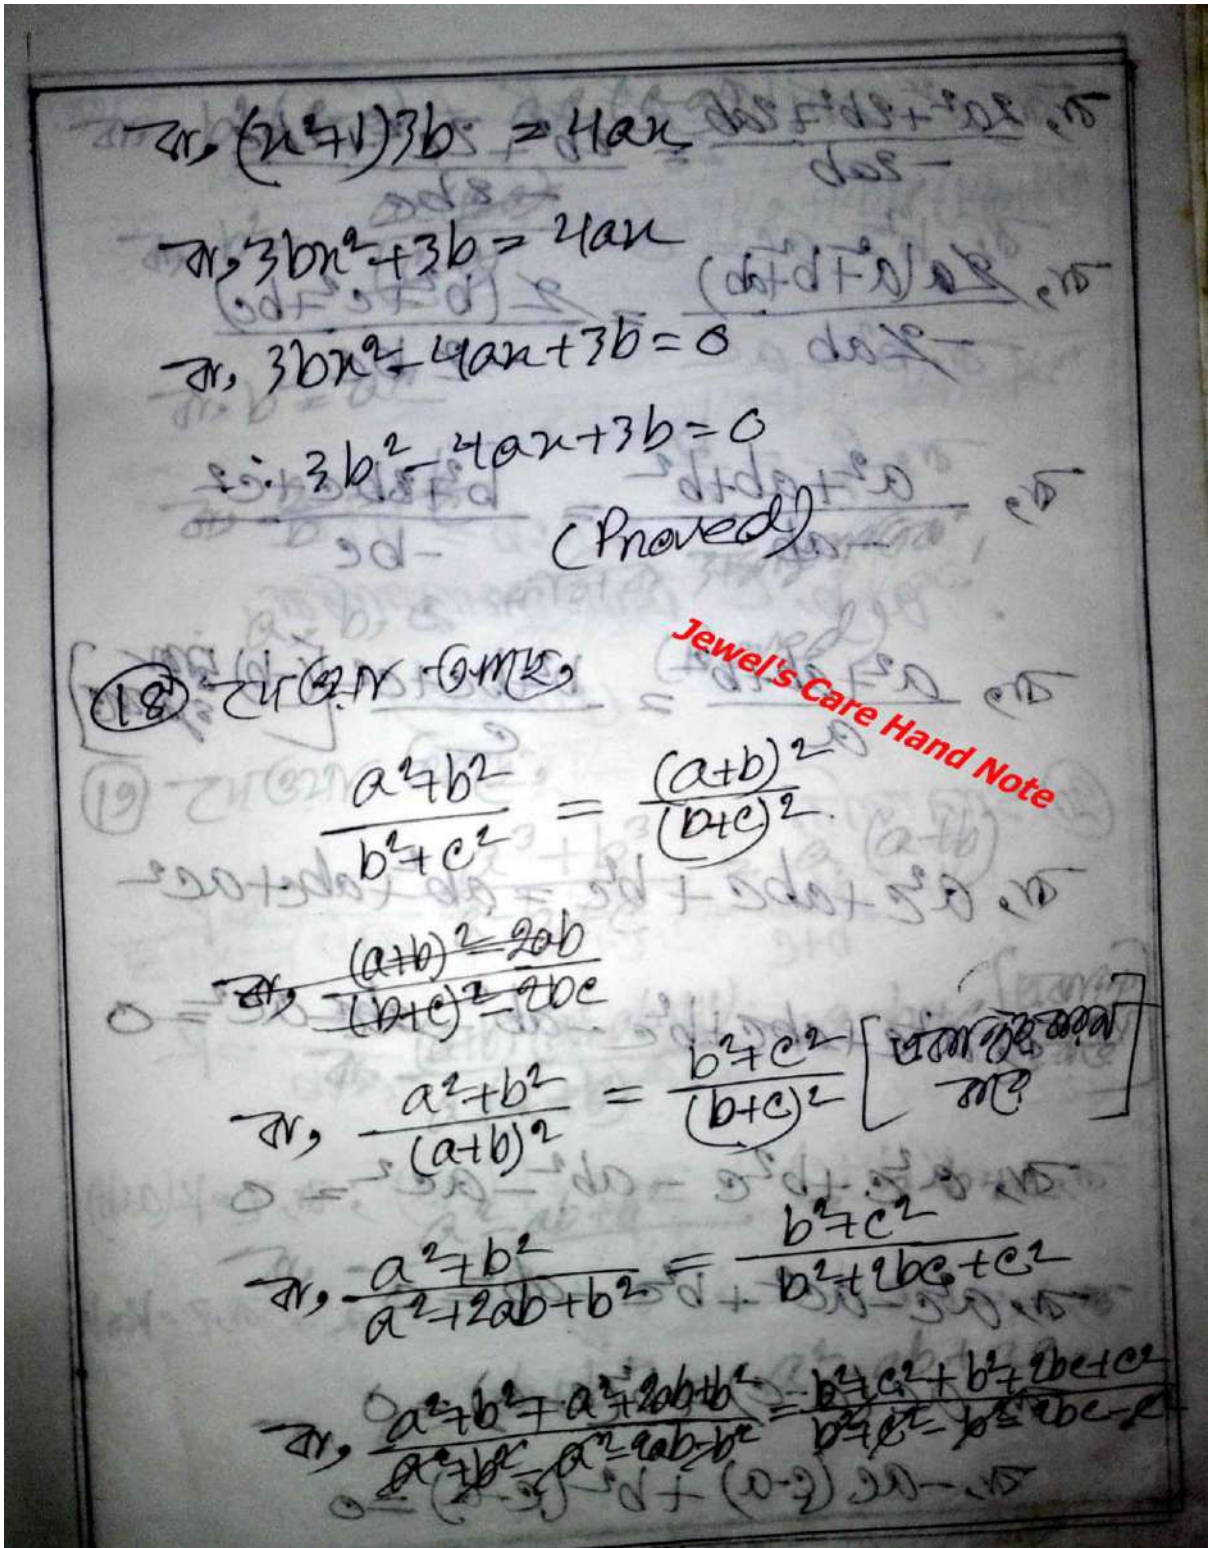 বা, (x²+1)3b = 4ax
বা, 3bx²+3b = 4ax
বা, 3bx²-4ax+3b=0
∴ 3b²-4ax+3b=0
(Proved)
Jewel's Care Hand Note
(18) দেওয়া আছে,
a²+b² / b²+c² = (a+b)² / (b+c)²
বা, (a+b)²-2ab / (b+c)²-2bc
বা, a²+b² / (a+b)² = b²+c² / (b+c)² [ করে ]
বা, a²+b² / a²+2ab+b² = b²+c² / b²+2bc+c²
বা, a²+b²+a²+2ab+b² / a²+b²-a²-2ab-b² = b²+c²+b²+2bc+c² / b²+c²-b²-2bc-c²